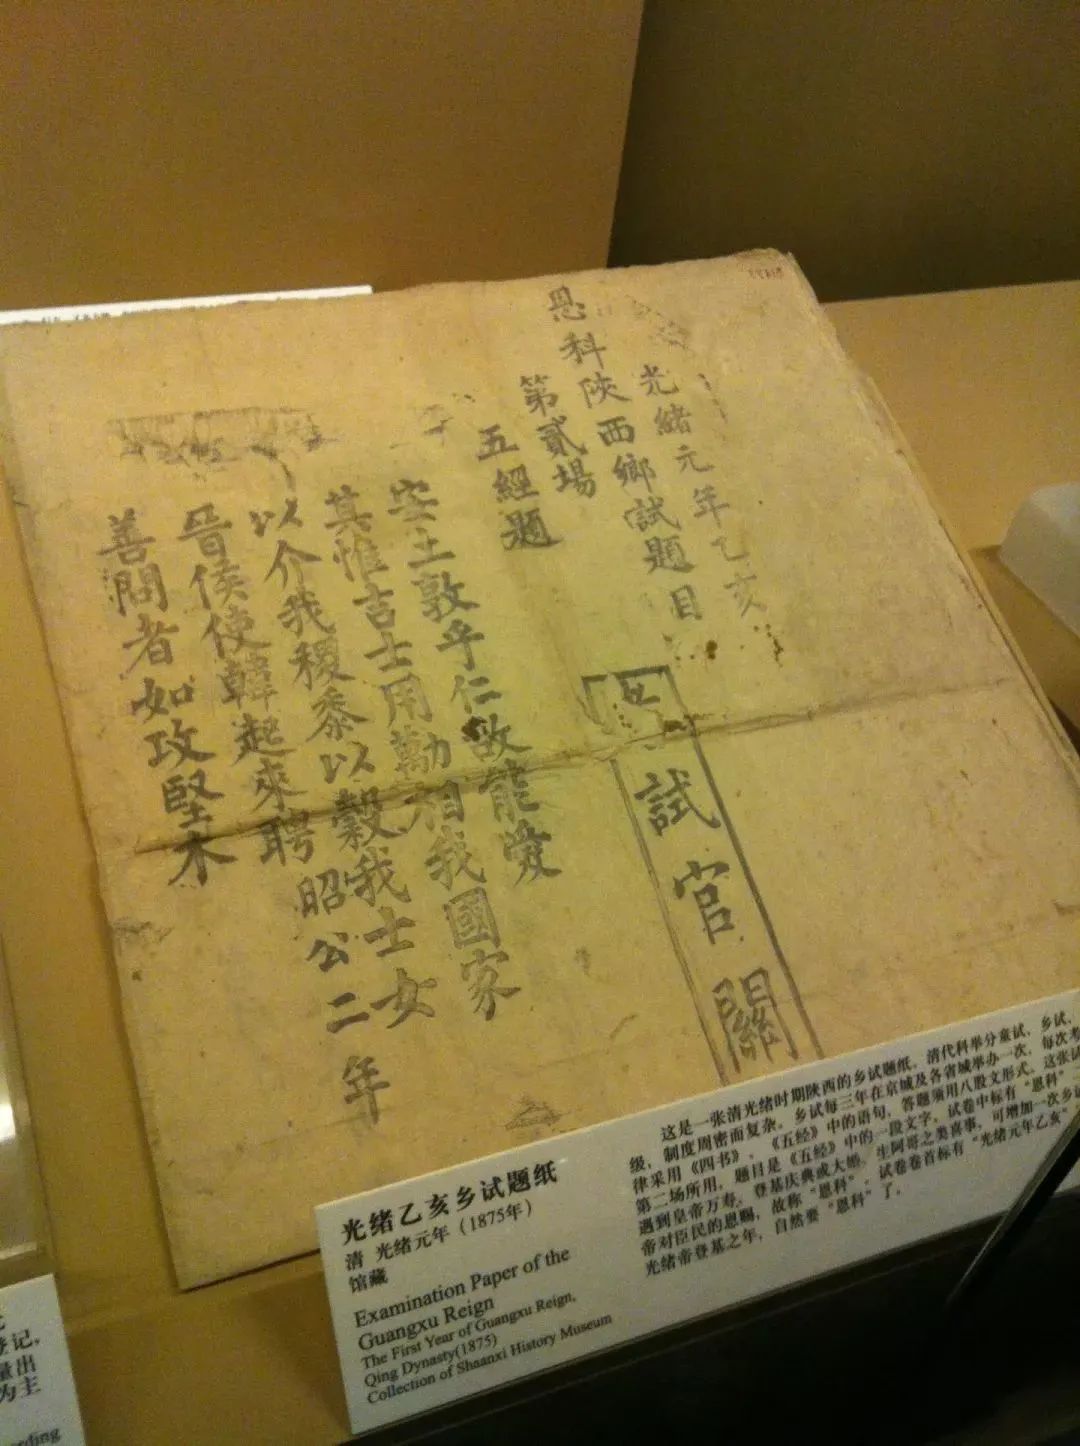 光緒元年乙亥
恩科陝西鄉試題目
第貳場
五經題
安土敦乎仁故能愛
其惟吉士用勱相我國家
以介我稷黍以穀我士女
晉侯使韓起來聘昭公二年
善問者如攻堅木
試官關
光绪乙亥乡试题纸
清 光绪元年（1875年）
馆藏
Examination Paper of the
Guangxu Reign
The First Year of Guangxu Reign,
Qing Dynasty(1875)
Collection of Shaanxi History Museum
这是一张清光绪时期陕西的乡试题纸。清代科举分童试、乡试、
级，制度周密而复杂。乡试每三年在京城及各省城举办一次，每次考
律采用《四书》、《五经》中的语句，答题须用八股文形式。这张试
第二场所用，题目是《五经》中的一段文字。试卷中标有“恩科”二
遇到皇帝万寿、登基庆典或大婚、生阿哥之类喜事，可增加一次乡试
帝对臣民的恩赐，故称“恩科”。试卷卷首标有“光绪元年乙亥”
光绪帝登基之年，自然要“恩科”了。
登记，
量出
为主